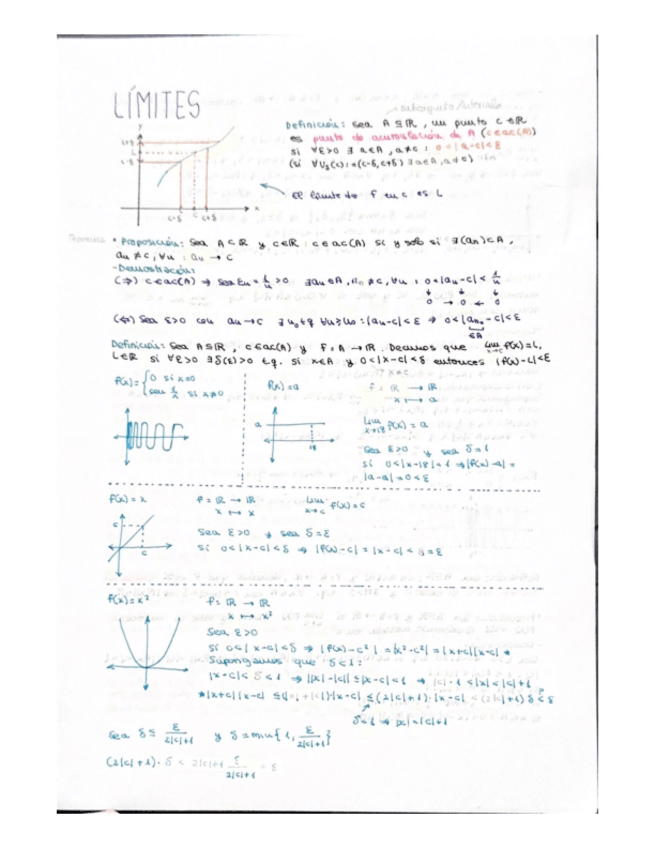 LÍMITES
Definición: Sea A ⊆ ℝ, un punto c ∈ ℝ
es punto de acumulación de A (c∈ac(A))
si ∀ε>0 ∃ a∈A, a≠c : 0<|a-c|<ε
(si ∀ ... (c) :=(c-δ, c+δ) ∃a∈A, a≠c)
y
c+δ
L
c-δ
c-δ c c+δ x
El límite de f en c es L
• Proposición: Sea A⊂ℝ y c∈ℝ : c∈ac(A) si y solo si ∃(an)⊂A,
an≠c, ∀n : an → c
-Demostración:
(⇒) c∈ac(A) ⇒ Sea εn = 1/n >0 ∃an∈A, an≠c, ∀n : 0<|an-c|< 1/n
↓ ↓ ↓
0 → 0 ← 0
(⇐) Sea ε>0 con an→c ∃n0 tq ∀n≥n0 : |an-c|<ε ⇒ 0<|an0-c|<ε
∈A
Definición: Sea A⊆ℝ, c∈ac(A) y f: A→ℝ. Decimos que lim x→c f(x)=L,
L∈ℝ si ∀ε>0 ∃δ(ε)>0 t.q. si x∈A y 0<|x-c|<δ entonces |f(x)-L|<ε
f(x)={0 si x=0
sen 1/x si x≠0
f(x)=a
f: ℝ → ℝ
x ↦ a
a
18
lim x→18 f(x) = a
Sea ε>0 y sea δ=1
si 0<|x-18|<1 ⇒ |f(x)-a|=
|a-a|=0<ε
f(x)=x
f: ℝ → ℝ
x ↦ x
lim x→c f(x)=c
c
c
Sea ε>0 y sea δ=ε
si 0<|x-c|<δ ⇒ |f(x)-c|=|x-c|<δ=ε
f(x)=x²
f: ℝ → ℝ
x ↦ x²
Sea ε>0
si 0<|x-c|<δ ⇒ |f(x)-c²|=|x²-c²|=|x+c||x-c| *
Supongamos que δ<1:
|x-c|<δ<1 ⇒ ||x|-|c|| ≤|x-c|<1 ⇒ |c|-1<|x|<|c|+1
*|x+c||x-c| ≤(|x|+|c|)·|x-c| ≤ (2|c|+1)·|x-c| < (2|c|+1) δ < ε
δ<1 ⇒ |x|<|c|+1
Sea δ ≤ ε/2|c|+1 y δ=min{1, ε/2|c|+1}
(2|c|+1)·δ < 2|c|+1 ε/2|c|+1 = ε